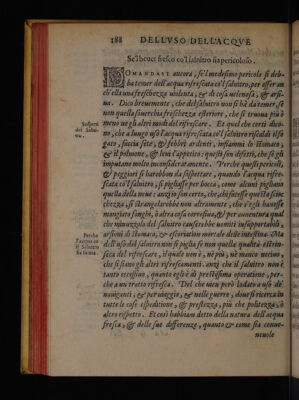 188 DELL'VSO DELL'ACQVE
Se'l beuer fresco co'l salnitro sia pericoloso.
DOMANDASI ancora, se'l medesimo pericolo si deb-
ba temer dell'acqua rifrescata co'l salnitro, per esser an
ch'ella una freschezza uiolenta, & di cosa uelenosa, & arsi-
na. Dico breuemente, che del salnitro non si hà da temer, se
non quella simerchia freschezza esteriore, che si truoua più ò
meno ne gli altri modi del rifrescare. Et qual che cerca dico-
no, che a lungo uso l'acqua rifrescata co'l salnitro riscaldi il fe
gato, faccia sete, & febbri ardenti, infiammi lo stomaco,
& il polmone, & leui l'appetito; questi son difetti, che se gli
imputano molto inconsideratamente. Perche questi pericoli,
& peggiori si harebbon da sospettare, quando l'acqua rifre-
scata co'l salnitro, si pigliasse per bocca, come alcuni pigliano
quella della neue:
Sospetti
del Salni-
tro.
mangiato funghi, ò altra cosa corrosiua, & per auentura qual
che minuzzolo del salnitro causerebbe uomiti insopportabili,
arsioni di stomaco, & escoriation mortale delle intestina. Ma
dell'uso del salnitro non si piglia se non quelle qualità estrin-
seca del rifrescare, il quale non è, nè più, nè manco nociuo,
che si siano gli altri rifrescamenti. anzi che il salnitro non è
tanto eccessiuo, quanto egli è di prestissima operatione, per-
che a un tratto rifresca. Del che uien però lodato a uso de'
nauiganti, & per uiaggio, & nelle guerre, doue si ricerca in
tutte le cose espeditione, & prestezza, più che politezza, ò
altro rispetto. Et così habbiam detto della natura dell'acqua
fresca, & delle sue differenze, quanto & come sia conue-
neuole
Perche
l'acqua co
il Salnitro
sia sana.